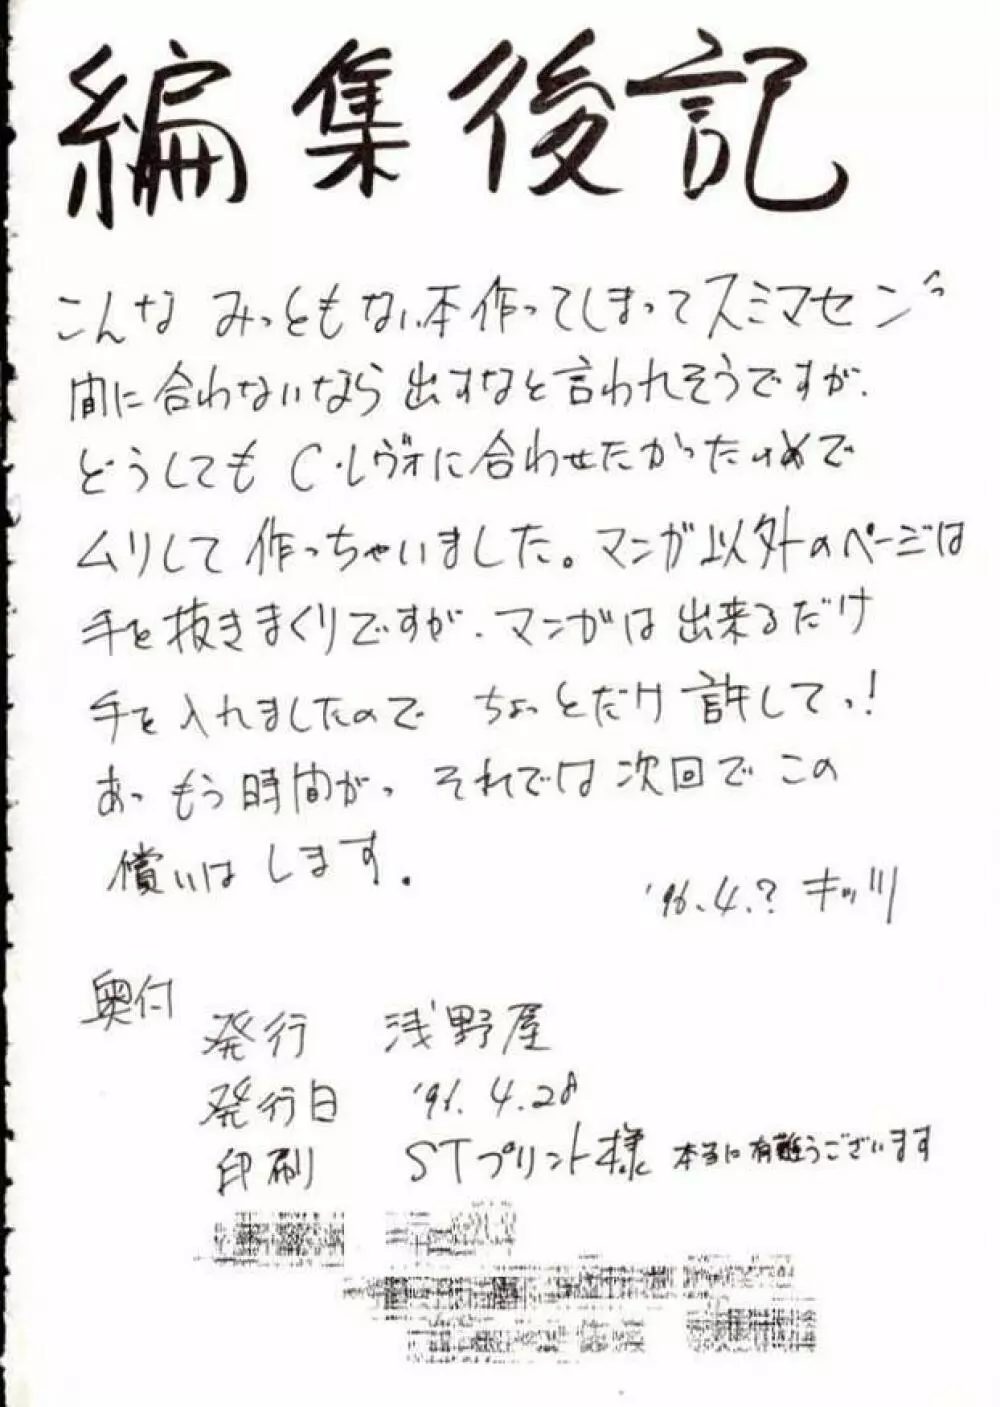 編集後記
こんな みっともない本作ってしまってスミマセンっ
間に合わないなら 出すなと言われそうですが、
どうしても C・レヴォに合わせたかったためで
ムリして 作っちゃいました。マンガ以外のページは
手を抜きまくりですが、マンガは 出来るだけ
手を入れましたので ちょっとだけ 許してっ!
あっ もう時間がっ それでは次回で この
償いは します。
'96.4.? キッツ
奥付
発行 浅野屋
発行日 '96.4.28
印刷 STプリント様 本当に有難うございます